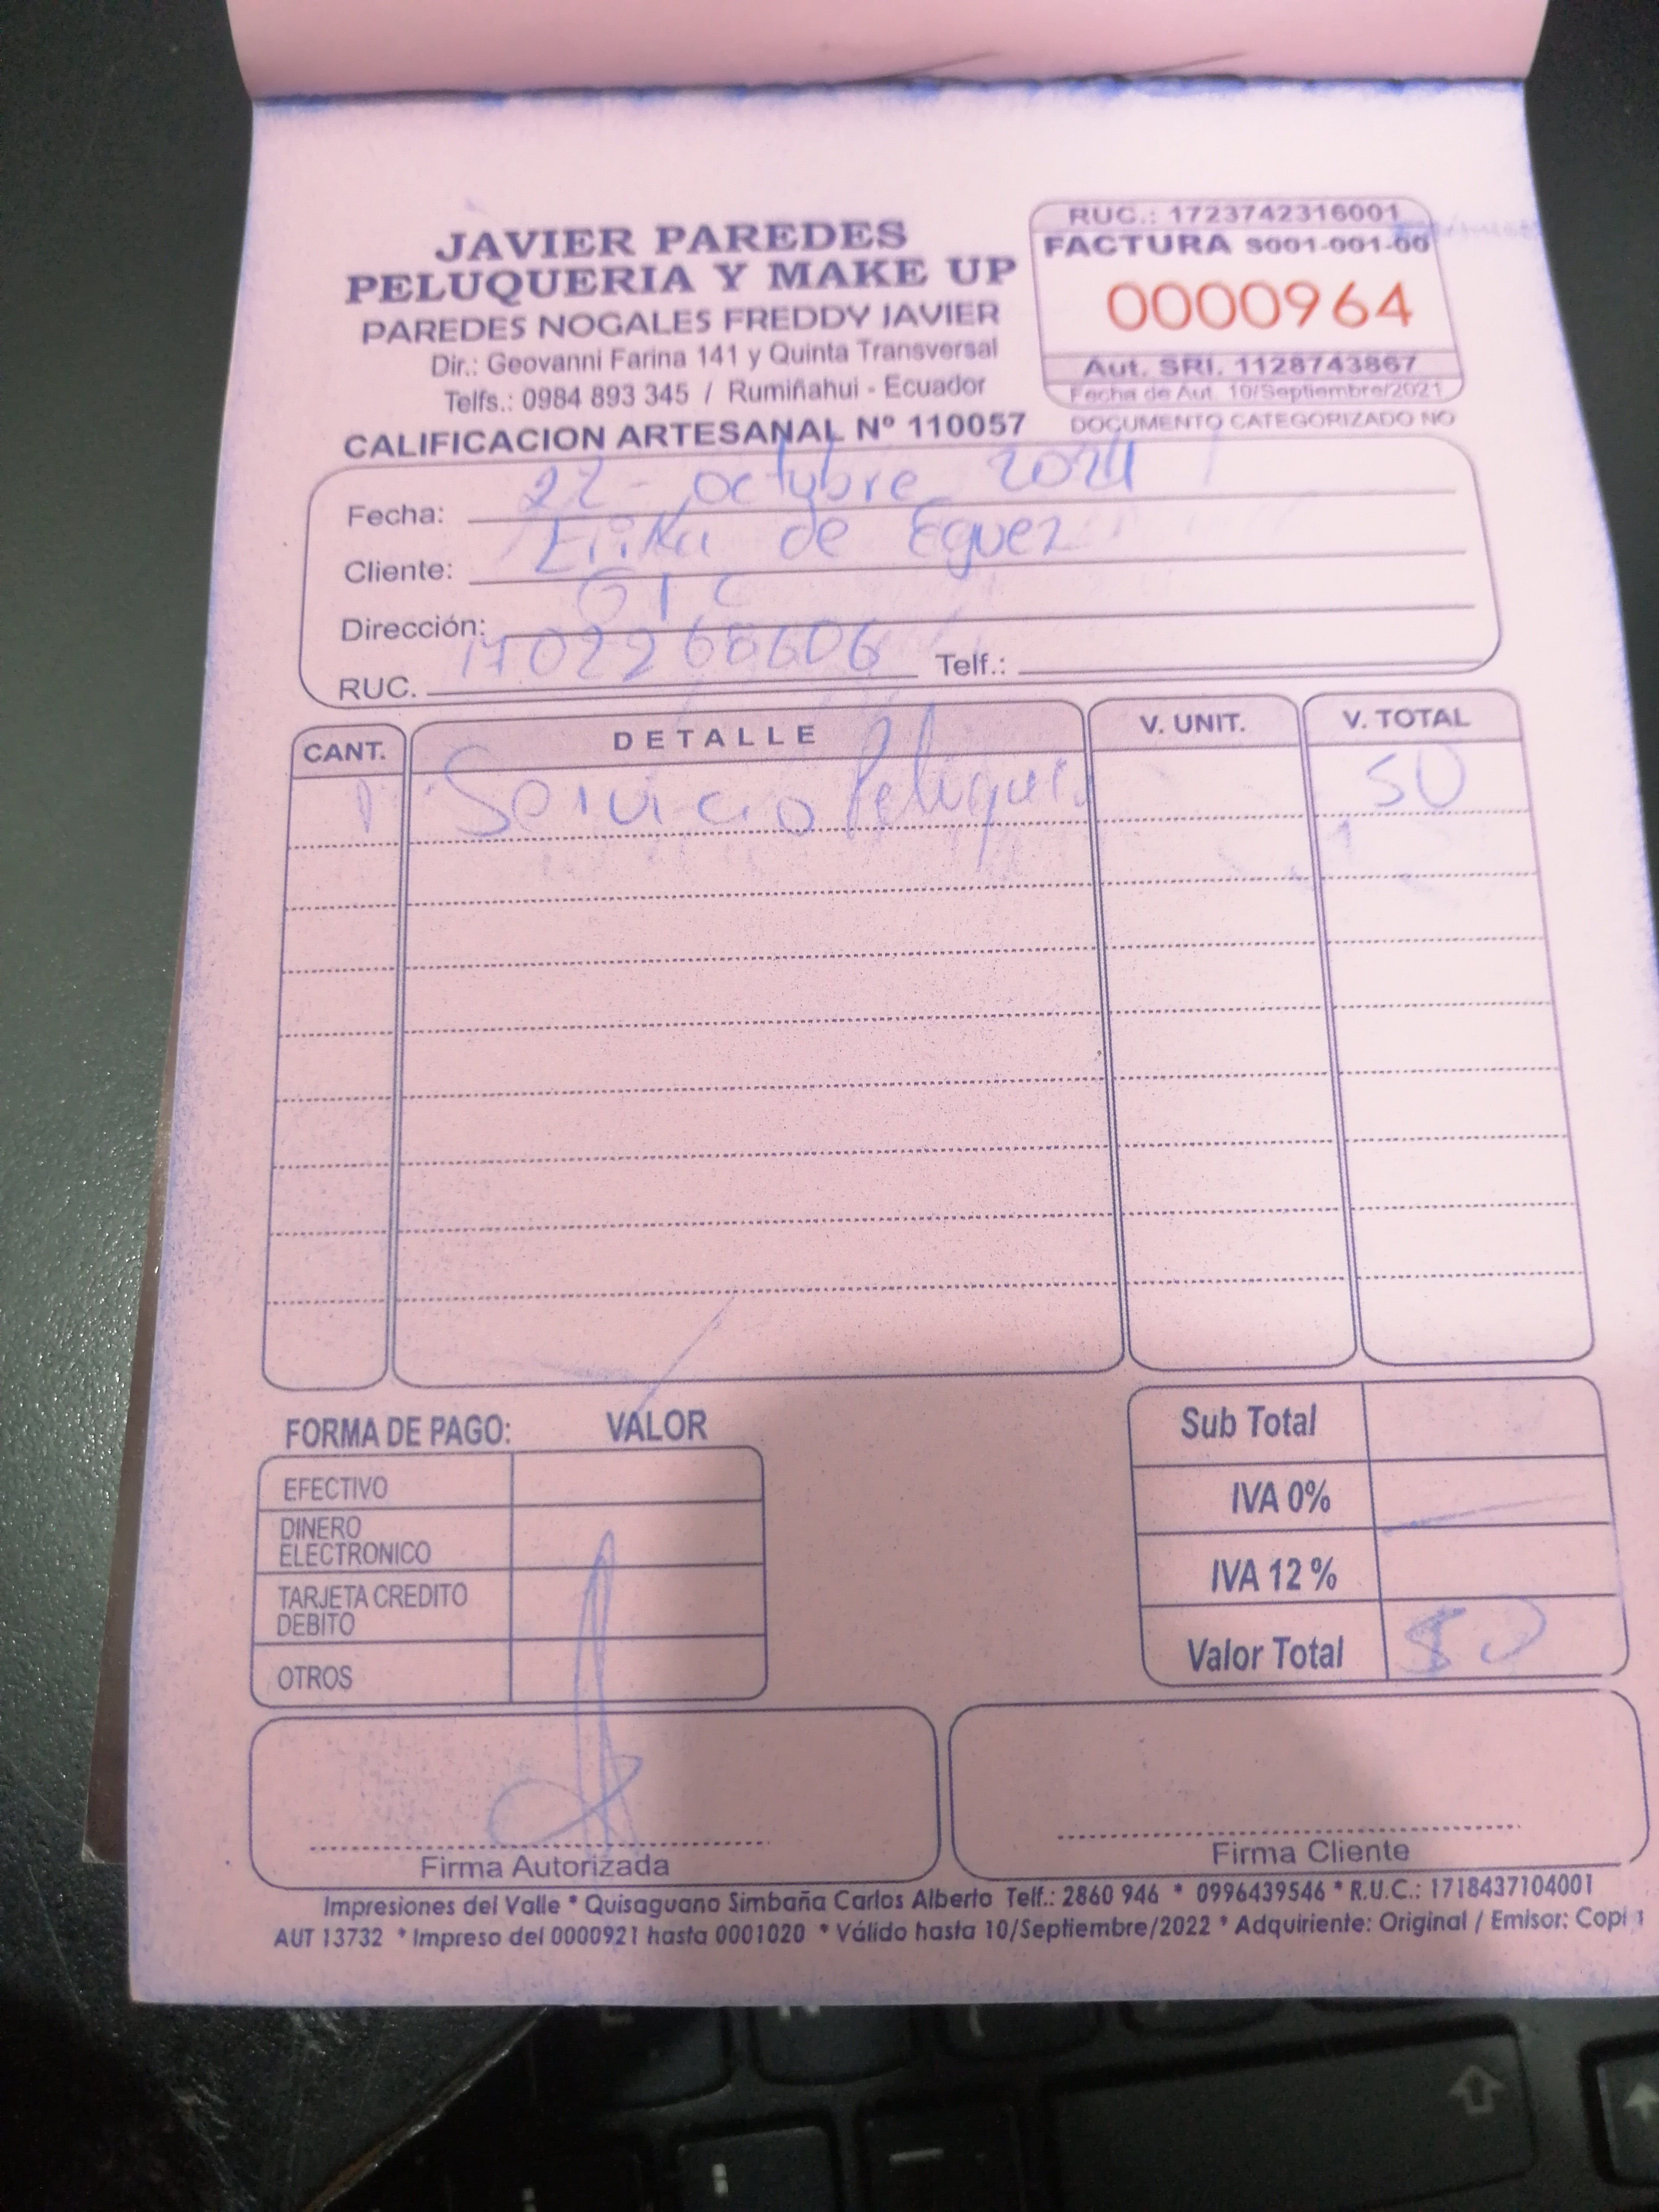 JAVIER PAREDES
PELUQUERIA Y MAKE UP
PAREDES NOGALES FREDDY JAVIER
Dir.: Geovanni Farina 141 y Quinta Transversal
Telfs.: 0984 893 345 / Rumiñahui - Ecuador
CALIFICACION ARTESANAL Nº 110057
RUC.: 1723742316001
FACTURA S001-001-00
0000964
Aut. SRI. 1128743867
Fecha de Aut. 10/Septiembre/2021
DOCUMENTO CATEGORIZADO NO
Fecha: 22- octubre 2021
Cliente: Erika de Eguez
Dirección:
RUC. Telf.:
CANT. DETALLE V. UNIT. V. TOTAL
1 Servicio 50
FORMA DE PAGO: VALOR
EFECTIVO
DINERO
ELECTRONICO
TARJETA CREDITO
DEBITO
OTROS
Sub Total
IVA 0%
IVA 12 %
Valor Total 50
Firma Autorizada
Firma Cliente
Impresiones del Valle * Quisaguano Simbaña Carlos Alberto Telf.: 2860 946 * 0996439546 * R.U.C.: 1718437104001
AUT 13732 * Impreso del 0000921 hasta 0001020 * Válido hasta 10/Septiembre/2022 * Adquiriente: Original / Emisor: Copia